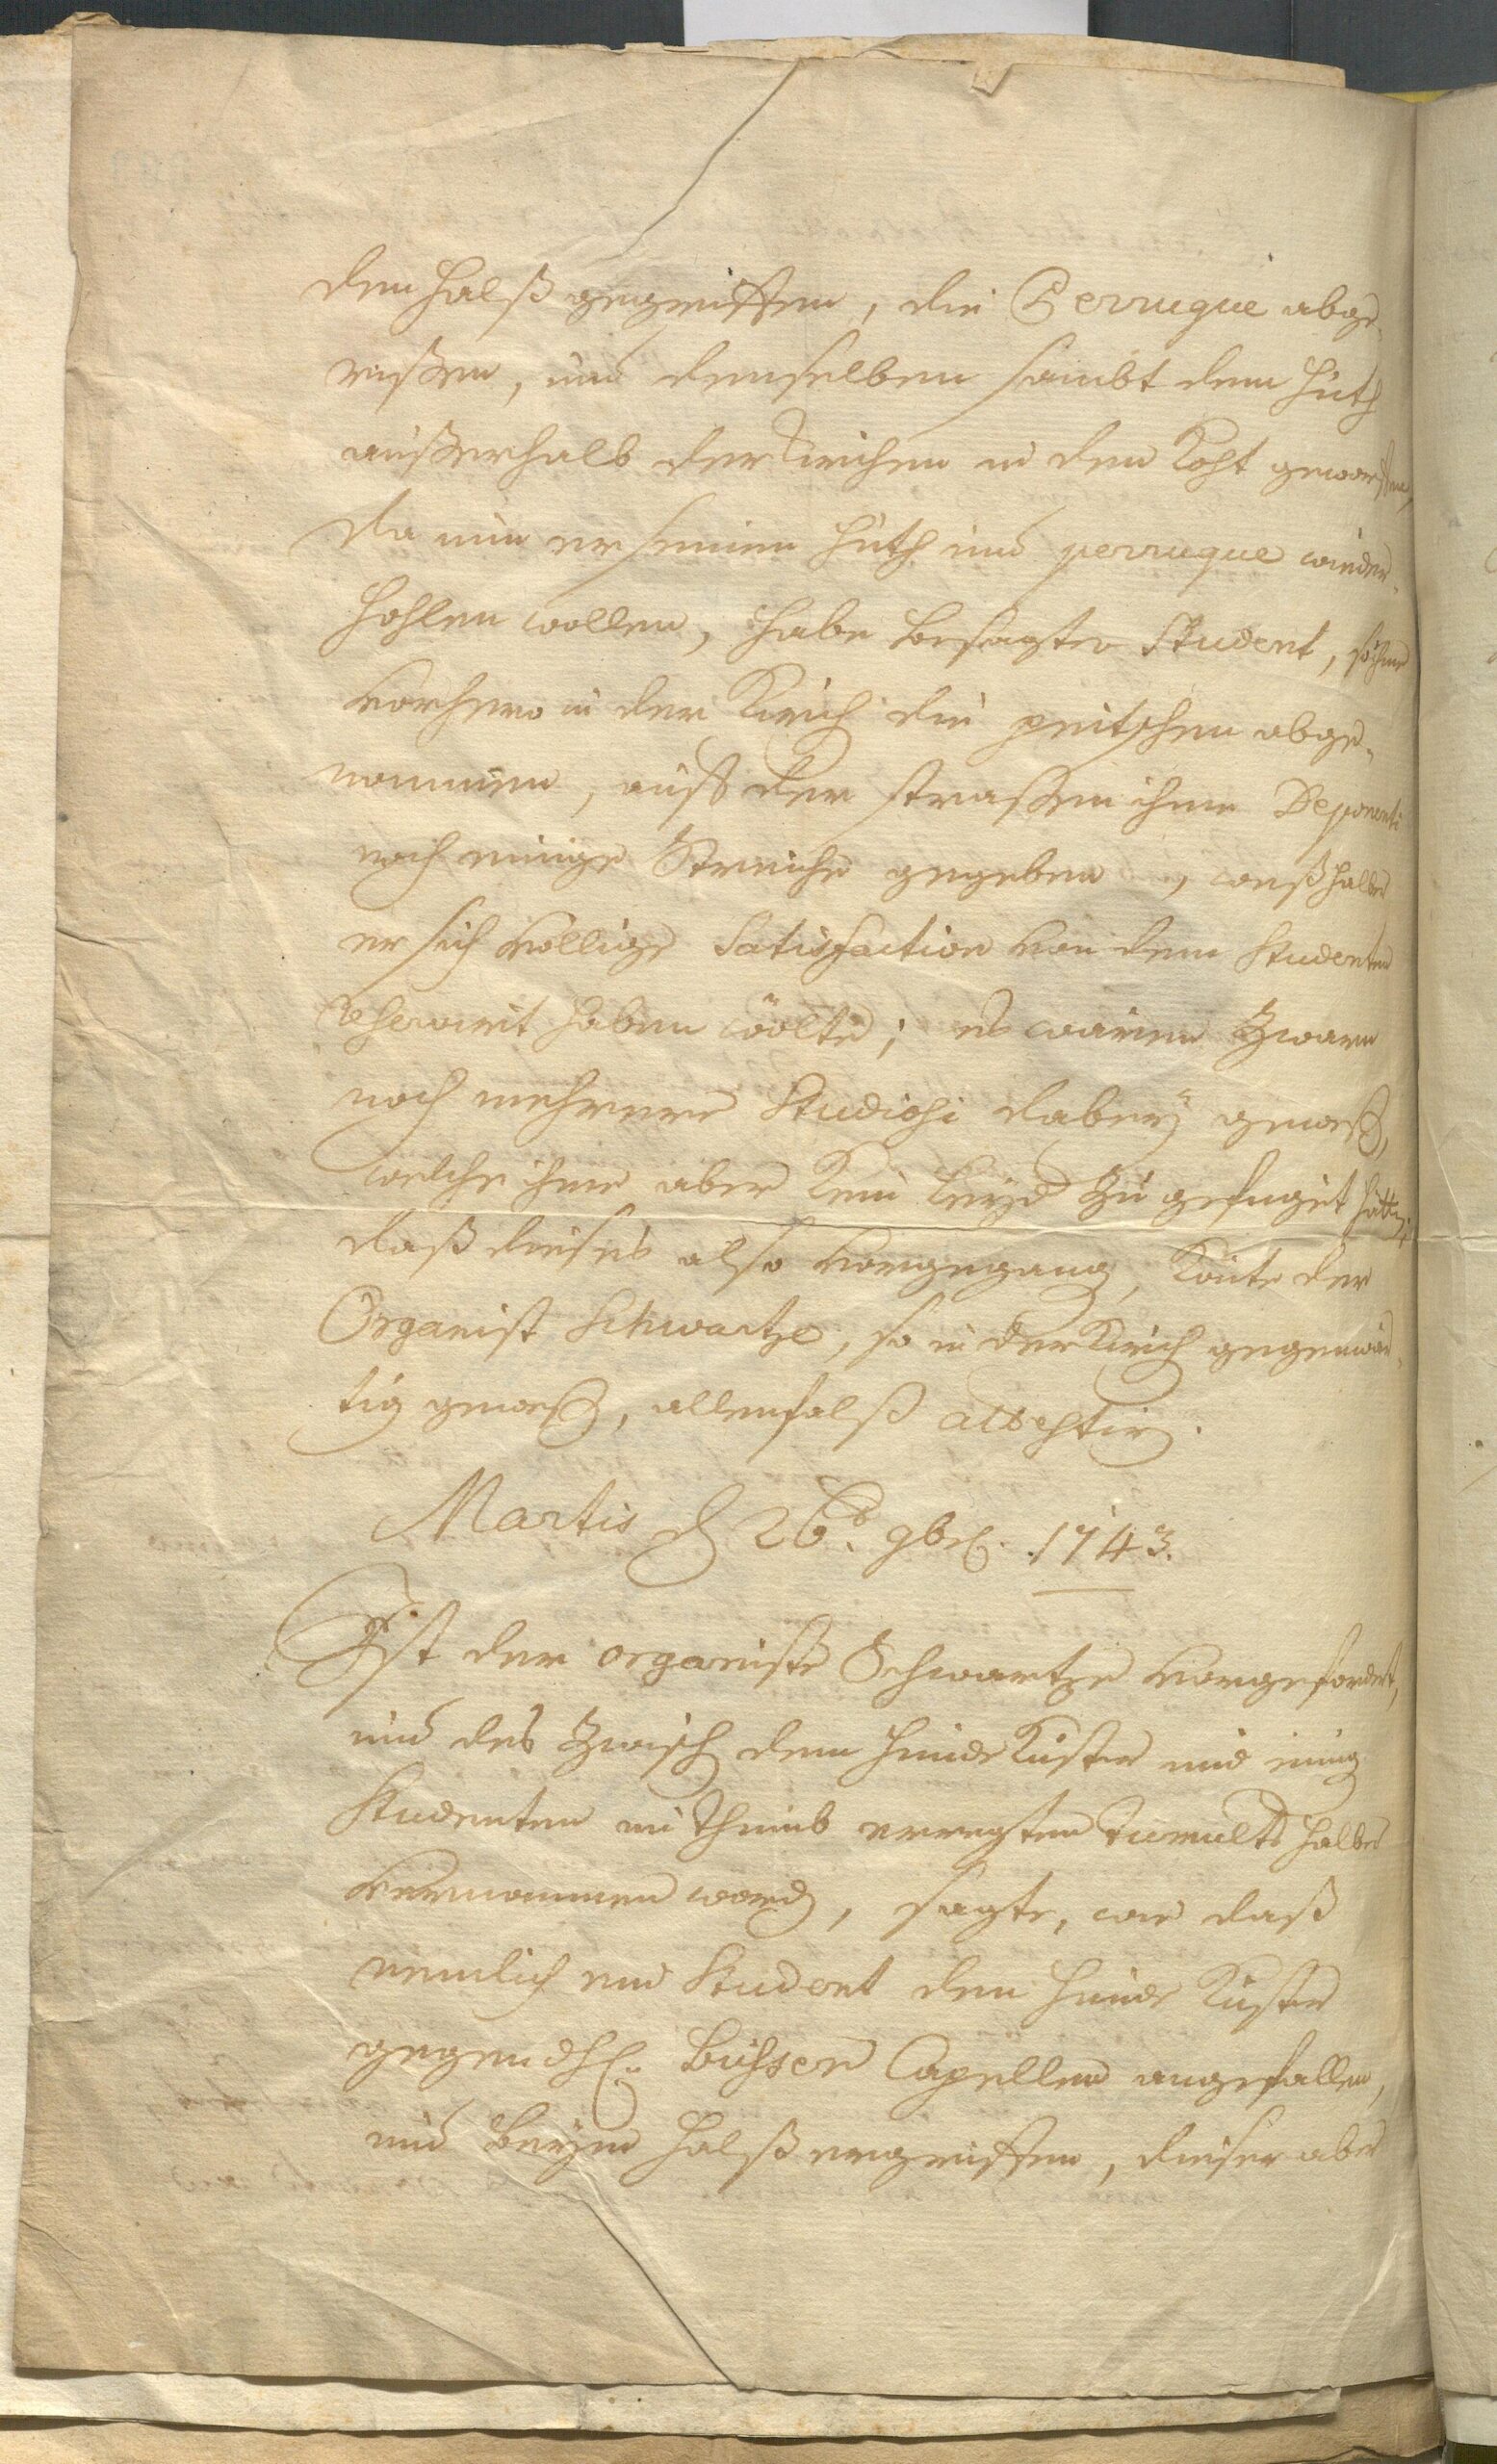 den Halß gegriffen, die Perruque abge-
rissen, und denselben sambt dem Huth
ausserhalb der Kirchen in den Koht geworffen,
da nun er seinen Huth und perruque wieder-
hohlen wollen, habe besagter Student, so ihme
vorhero in der Kirch die peitschen abge-
nommen, auff der strassen ihme Deponenti
noch einige Streiche gegeben, weßhalben
er sich völlige Satisfaction von dem Studenten
reservirt haben wölte; es wären zwarn
noch mehrere Studiosi dabeÿ gewesen,
welche ihme aber kein leÿd zu gefuget hätten,
daß dieses also vorgegangen, könte der
Organist Schwartze, so in der Kirch gegenwär-
tig gewesen, allenfalß attestiren.
Martis d 26t. 9bris. 1743.
Ist der organiste Schwartze vorgefordert,
und des zwischen dem Hunde Küster und einigen
Studenten im Thumb erregten tumults halber
vernommen worden, sagte, wie daß
nemlich ein Student den Hunde Küster
gegen der Büsser Capellen angefallen,
und beÿm Halß ergriffen, dieser aber